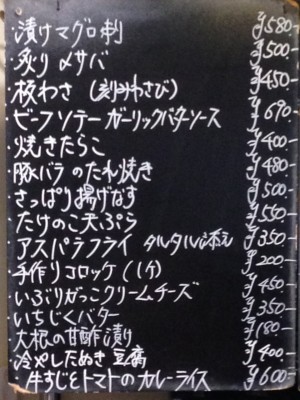 ・漬けマグロ刺 ¥580-
・炙り〆サバ ¥500-
・板わさ (刻みわさび) ¥450-
・ビーフソテーガーリックバターソース ¥690-
・焼きたらこ ¥400-
・豚バラのたれ焼き ¥480-
・さっぱり揚げなす ¥500-
・たけのこ天ぷら ¥550-
・アスパラフライ タルタル添え ¥350-
・手作りコロッケ(1ケ) ¥200-
・いぶりがっこクリームチーズ ¥450-
・いちじくバター ¥350-
・大根の甘酢漬け ¥180-
・冷やしたぬき豆腐 ¥400-
・牛すじとトマトのカレーライス ¥600-